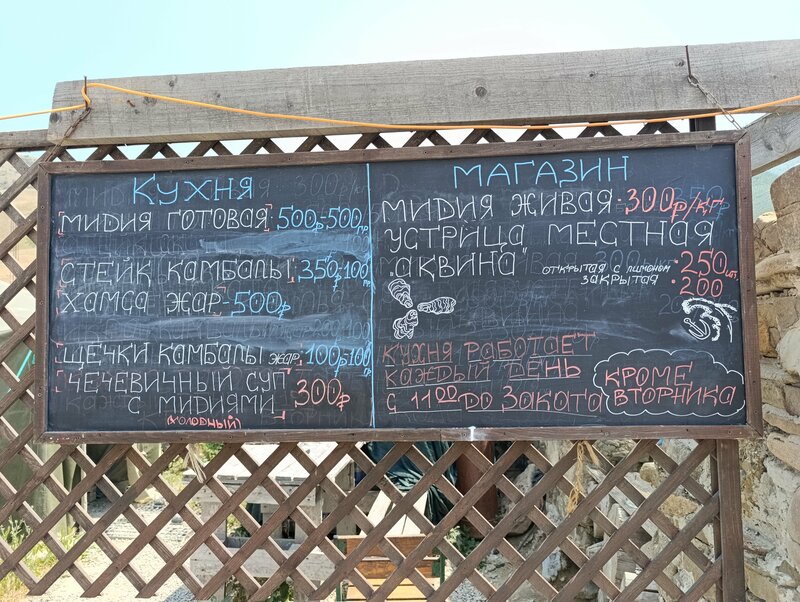 КУХНЯ
МИДИЯ ГОТОВАЯ 500р-500гр
СТЕЙК КАМБАЛЫ 350р-100гр
ХАМСА ЖАР-500р
ЩЕЧКИ КАМБАЛЫ ЖАР. 100р-100гр
ЧЕЧЕВИЧНЫЙ СУП
С МИДИЯМИ 300р
(ХОЛОДНЫЙ)
МАГАЗИН
МИДИЯ ЖИВАЯ·300р/кг
УСТРИЦА МЕСТНАЯ
"АКВИНА" ОТКРЫТАЯ С ЛИМОНОМ ·250шт
ЗАКРЫТАЯ ·200
КУХНЯ РАБОТАЕТ
КАЖДЫЙ ДЕНЬ
С 11 00 ДО ЗАКАТА
КРОМЕ
ВТОРНИКА